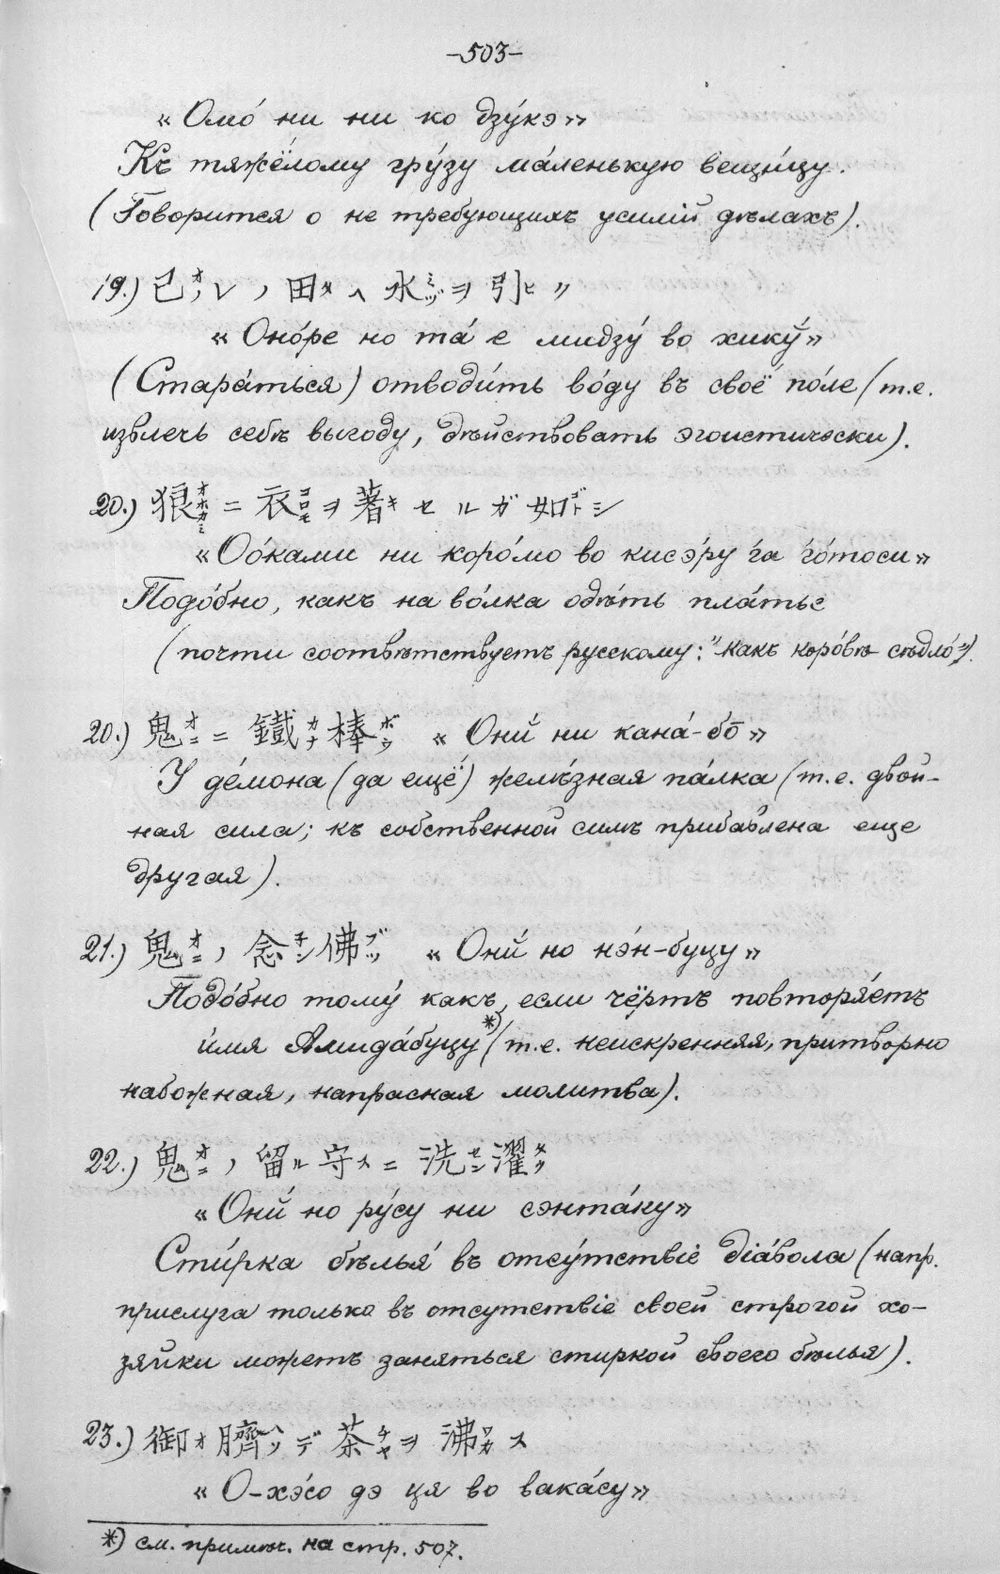 -503-
«Омо́ ни ни ко дзу́кэ»
Къ тяжёлому гру́зу ма́ленькую вещи́цу.
(Говорится о не требующихъ усилій дѣлахъ).
19.) 己オノレノ田タヘ水ミヅヲ引ヒク
«Оно́ре но та́ е мидзу́ во хику́»
(Стара́ться) отводи́ть во́ду въ своё по́ле (т.е.
извлечь себѣ выгоду, дѣйствовать эгоистически).
20.) 狼オホカミニ衣コロモヲ著キセルガ如ゴトシ
«Оо́ками ни коро́мо во кисэ́ру га го́тоси»
Подо́бно, какъ на во́лка одѣ́ть пла́тье
(почти соотвѣтствуетъ русскому: "какъ коро́вѣ сѣдло́").
20.) 鬼オニニ鐵カナ棒ボウ «Они́ ни кана́-бо̄»
У де́мона (да ещё) желѣ́зная па́лка (т.е. двой-
ная сила; къ собственной силѣ прибавлена еще
другая).
21.) 鬼オニノ念ネン佛ブツ «Они́ но нэ́н-буцу»
Подо́бно тому́ какъ, если чёртъ повторя́етъ
и́мя Амида́буцу*) (т.е. неискренняя, притворно
набожная, напрасная молитва).
22.) 鬼オニノ留ル守スニ洗セン濯タク
«Они́ но ру́су ни сэнта́ку»
Сти́рка бѣлья́ въ отсу́тствіе діа́вола (напр.
прислуга только въ отсутствіе своей строгой хо-
зяйки можетъ заняться стиркой своего бѣлья).
23.) 御オ臍ヘソデ茶チャヲ沸ワカス
«О-хэ́со дэ ця во вака́су»
*) см. примѣч. на стр. 507.